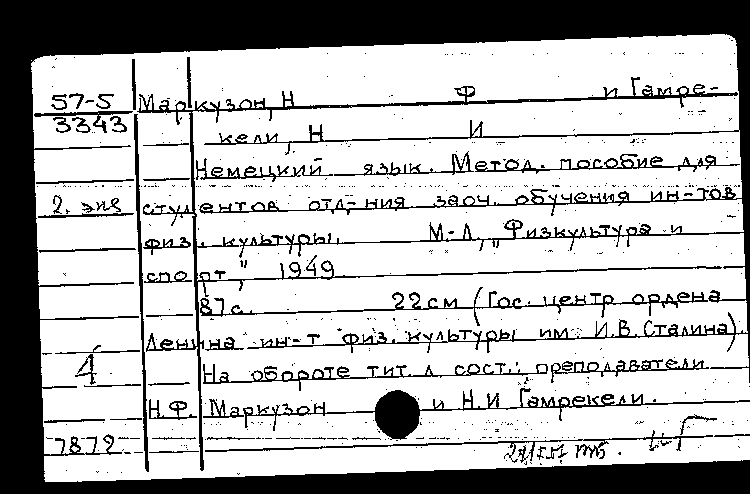 57-5 Маркузон, Н Ф и Гамре-
3343 кели, Н И
Немецкий язык. Метод. пособие для
2. экз студентов отд-ния заоч. обучения ин-тов
физ. культуры. М.-Л., „Физкультура и
спорт", 1949.
87 с. 22 см (Гос. центр. ордена
Ленина ин-т физ. культуры им. И.В. Сталина).
4 На обороте тит. л. сост.: преподаватели
Н.Ф. Маркузон и Н.И Гамрекели.
7872